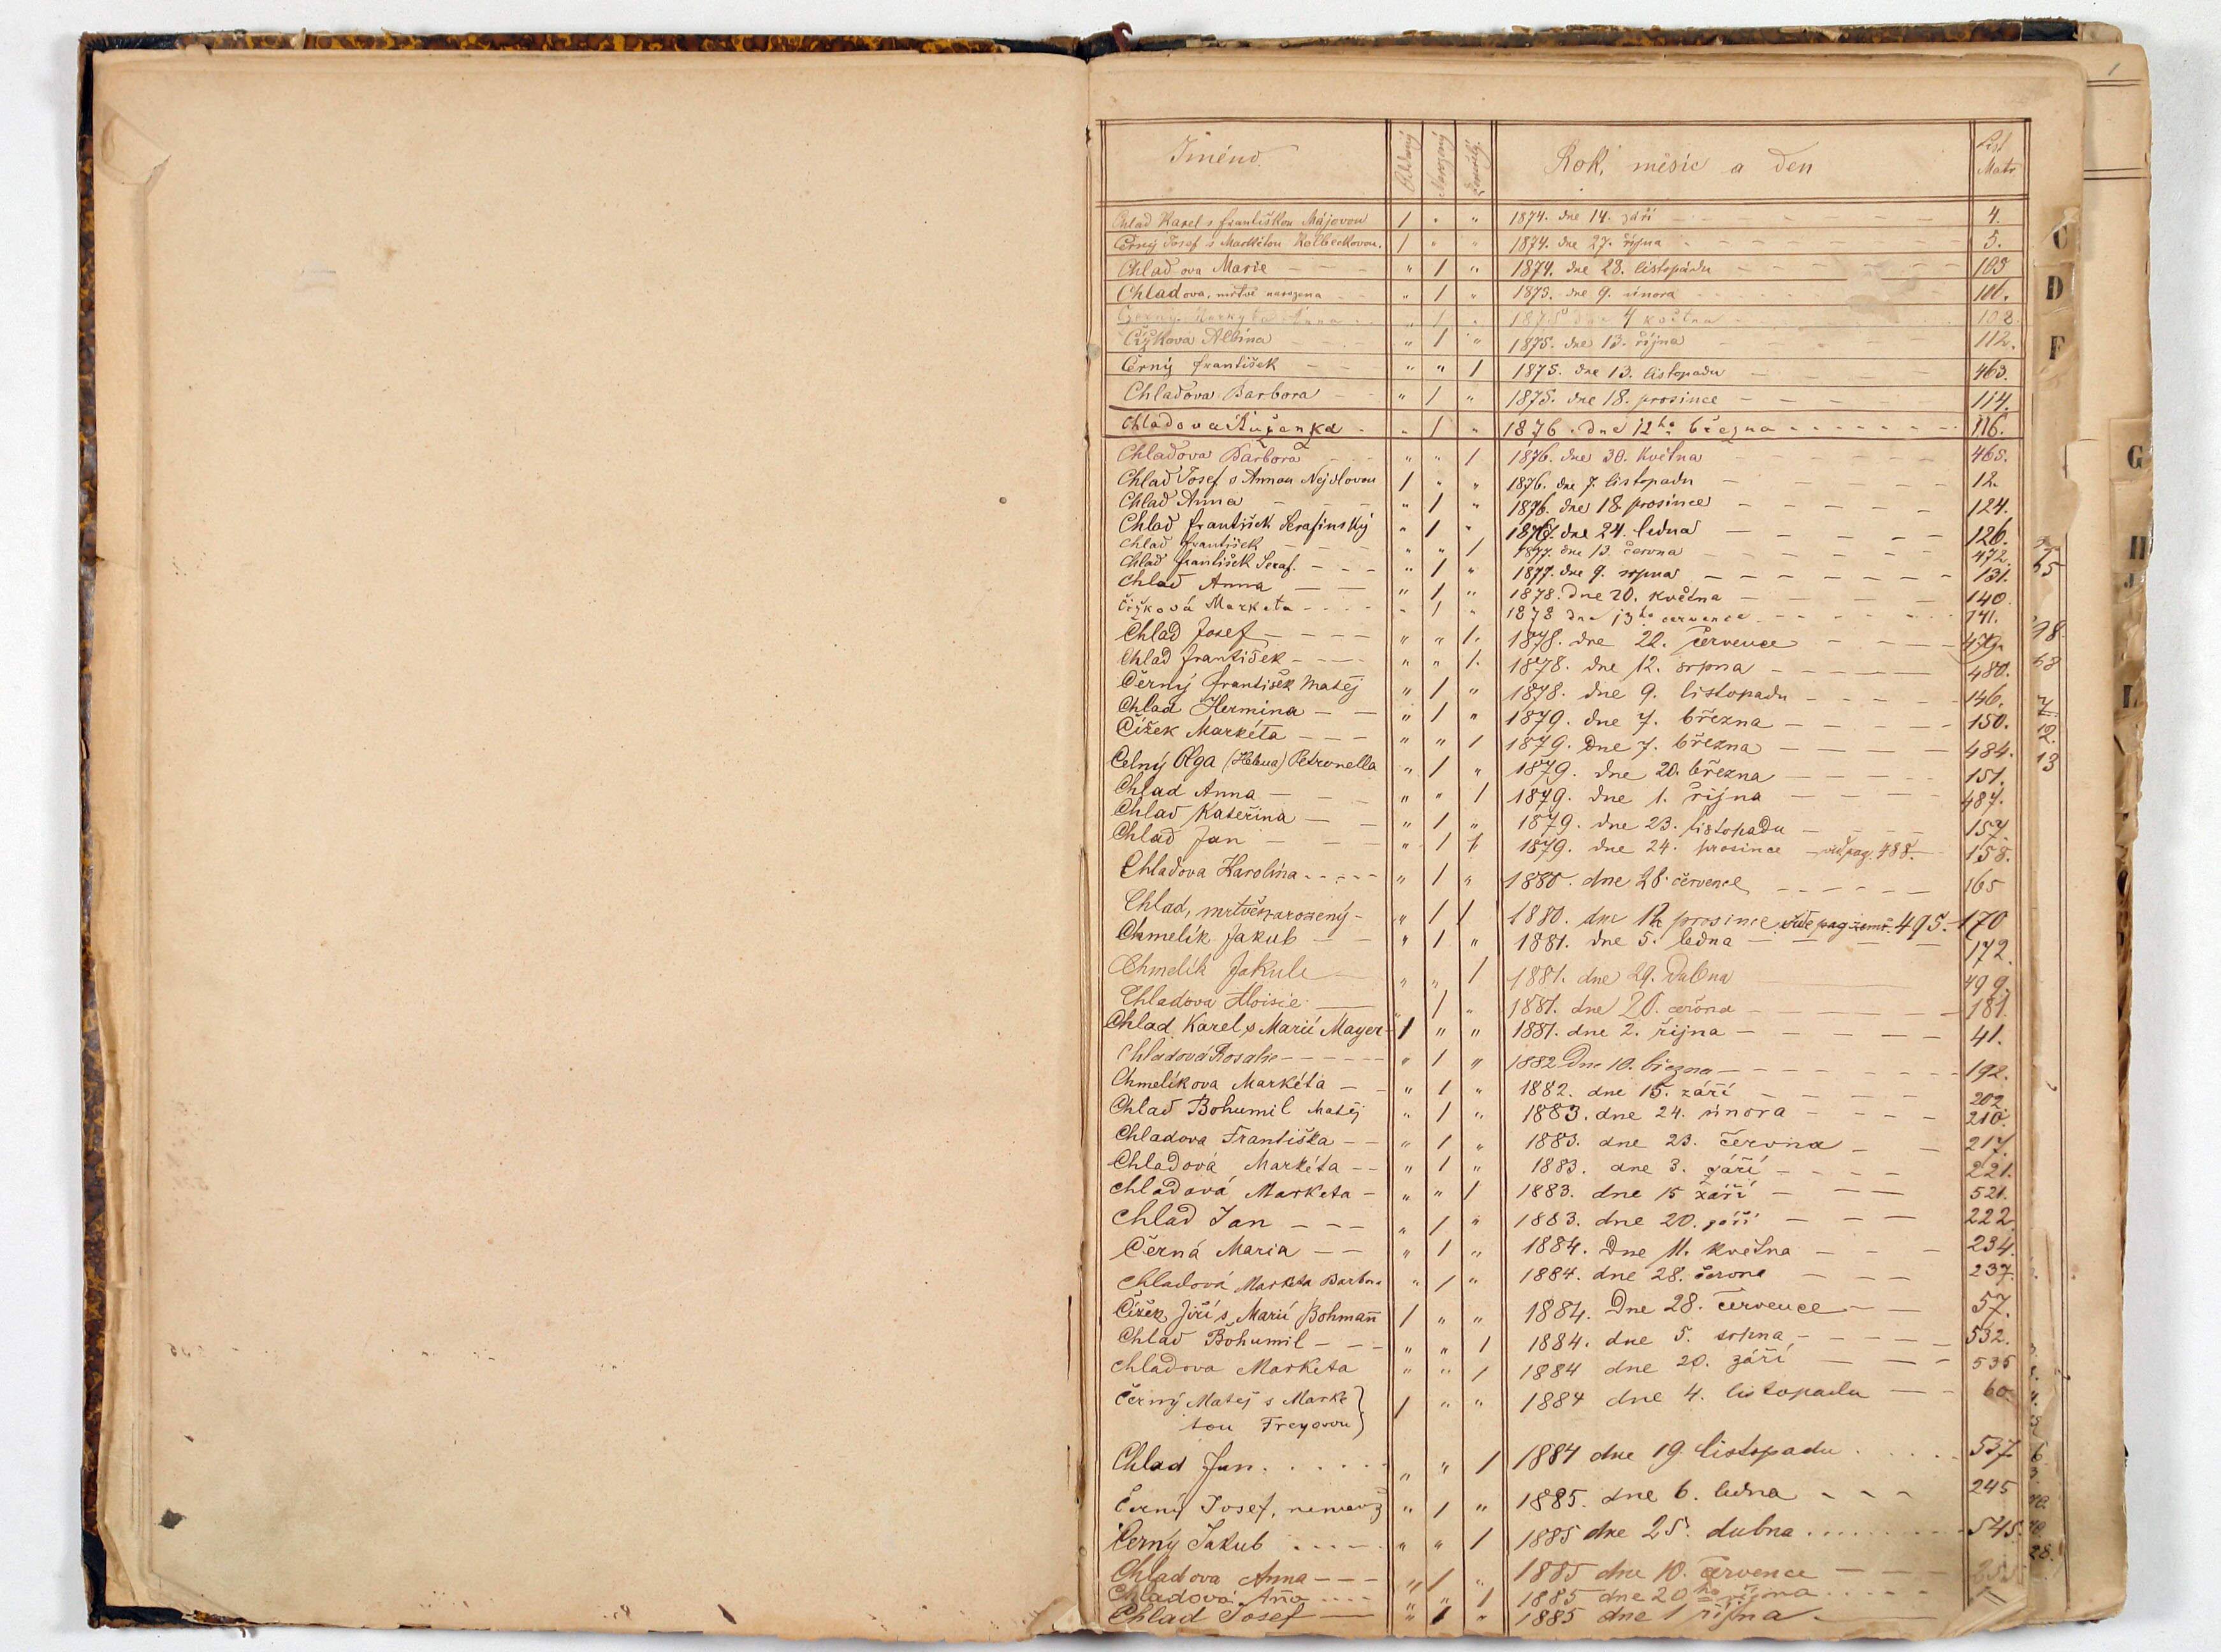 1
Jméno. Oddaný Narozený Zemřelý. Rok, měsíc a den List Matr.
Chlad Karel s Františkou Májovou / " " 1874. dne 14. září 4.
Černý Josef s Markétou Kolbeckovou. / " " 1874. dne 27. října 5.
Chladova Marie " / " 1874. dne 28. listopadu 103
Chladova, mrtvě narozena " / " 1875. dne 9. února 106.
Anna " / " 1875 dne 4 května 108.
Čížkova Albina " / " 1875. dne 13. října 112.
Černý František " " / 1875. dne 13. listopadu 463.
Chladova Barbora " / " 1875. dne 18. prosince 114.
Chladová " / " 1876. dne 12ho března 116.
Chladova Barbora " " / 1876. dne 30. Května 465.
Chlad Josef s Annou Nejdlovou / " " 1876. dne 7. listopadu 12.
Chlad Anna " / " 1876. dne 18. prosince 124.
Chlad František Serafinský " / " 1877. dne 24. ledna 126.
Chlad František " " / 1877. dne 13. června 472.
Chlad František Seraf. " / " 1877. dne 9. srpna 131.
Chlad Anna " / " 1878. dne 20. května 140.
Čížková Marketa " / " 1878 dne 13ho července 141.
Chlad Josef " " /. 1878. dne 22. července
Chlad František " " /. 1878. dne 12. srpna 480.
Černý František Matěj " / " 1878. dne 9. listopadu 146.
Chlad Hermina " / " 1879. dne 7. března 150.
Čížek Markéta " " / 1879. Dne 7. března 484.
Celný Olga (Helena) Petronella " / " 1879. dne 20. března 151.
Chlad Anna " " / 1879. dne 1. října 487.
Chlad Kateřina " / " 1879. dne 23. listopadu 157.
Chlad Jan " / / 1879. dne 24. prosince vid pag. 488. 158.
Chladova Karolina " / " 1880. dne 28. července 165
Chlad, mrtvěnarozený " / / 1880. dne 12 prosince vide pag. zemř. 495. 170
Chmelík Jakub " / " 1881. dne 5. ledna 172.
Chmelík Jakub " " / 1881. dne 29. Dubna 499.
Chladova Aloisie " / " 1881. dne 20. června 181.
Chlad Karel s Marií Mayer / " " 1881. dne 2. října 41.
Chladová Rosalie " / " 1882 Dne 10. března 192.
Chmelíkova Markéta " / " 1882. dne 15. září 202.
Chlad Bohumil Matěj " / " 1883. dne 24. února 210.
Chladova Františka " / " 1883. dne 23. června 217.
Chladová Markéta " / " 1883. dne 3. září 221.
Chladová Marketa " " / 1883. dne 15 září 521.
Chlad Jan " / " 1883. dne 20. září 222.
Černá Maria " / " 1884. Dne 11. května 234.
Chladová Marketa Barbora " / " 1884. dne 28. června 237.
Čížek Jiří s Marií Bohmann / " " 1884. Dne 28. července 57.
Chlad Bohumil " " / 1884. dne 5. srpna 532.
Chladova Marketa " " / 1884 dne 20. září 535
Černý Matěj s Marke / " " 1884 dne 4. listopadu 60.
tou Freyovou
Chlad Jan. " " / 1884 dne 19. listopadu 537
Černý Josef, " / " 1885. dne 6. ledna 245
Černý Jakub " " / 1885 dne 25. dubna 545.
Chladova Anna " / " 1885 dne 10. července
Chladová Anna " " / 1885 dne 20ho října
Chlad Josef " / " 1885 dne 1 října
C
D
F
G
H
J
L